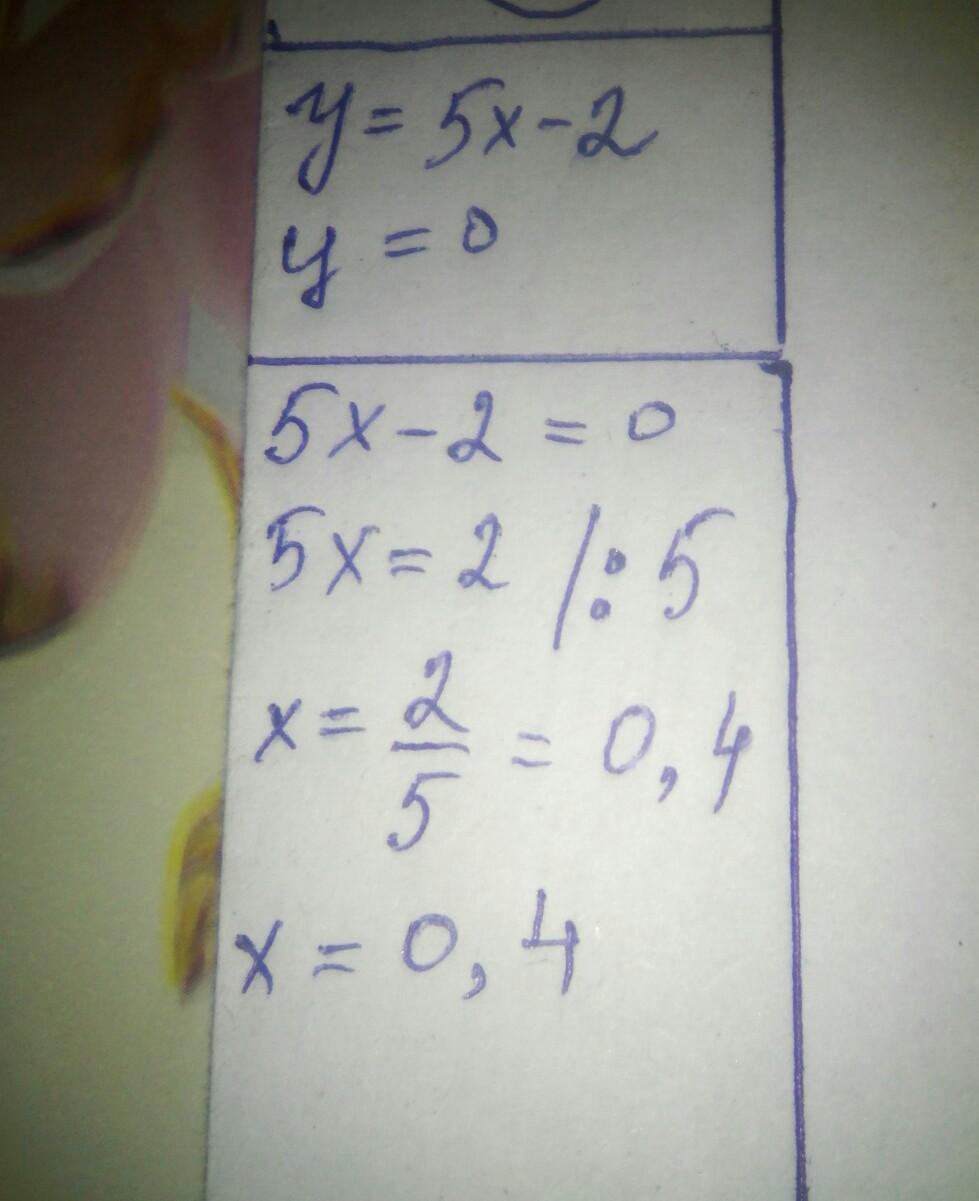 y = 5x - 2
y = 0
5x - 2 = 0
5x = 2 / : 5
x = 2/5 = 0,4
x = 0,4